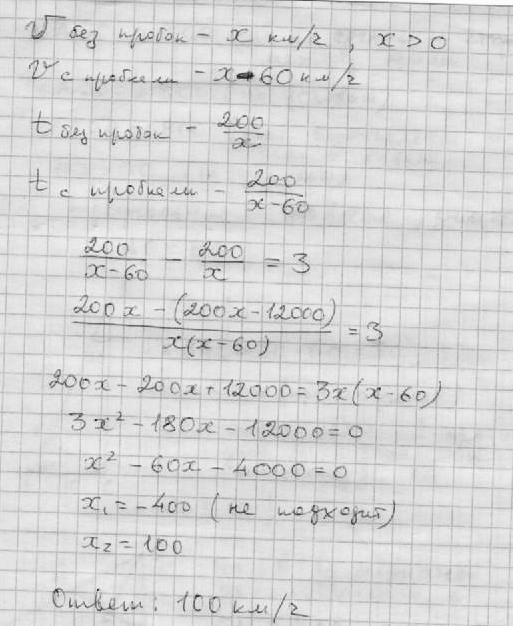 V без пробок - x км/ч, x > 0
V с пробками - x-60 км/ч
t без пробок - 200/x
t с пробками - 200/(x-60)
200/(x-60) - 200/x = 3
(200x - (200x - 12000))/(x(x-60)) = 3
200x - 200x + 12000 = 3x(x-60)
3x² - 180x - 12000 = 0
x² - 60x - 4000 = 0
x₁ = -400 (не подходит)
x₂ = 100
Ответ: 100 км/ч